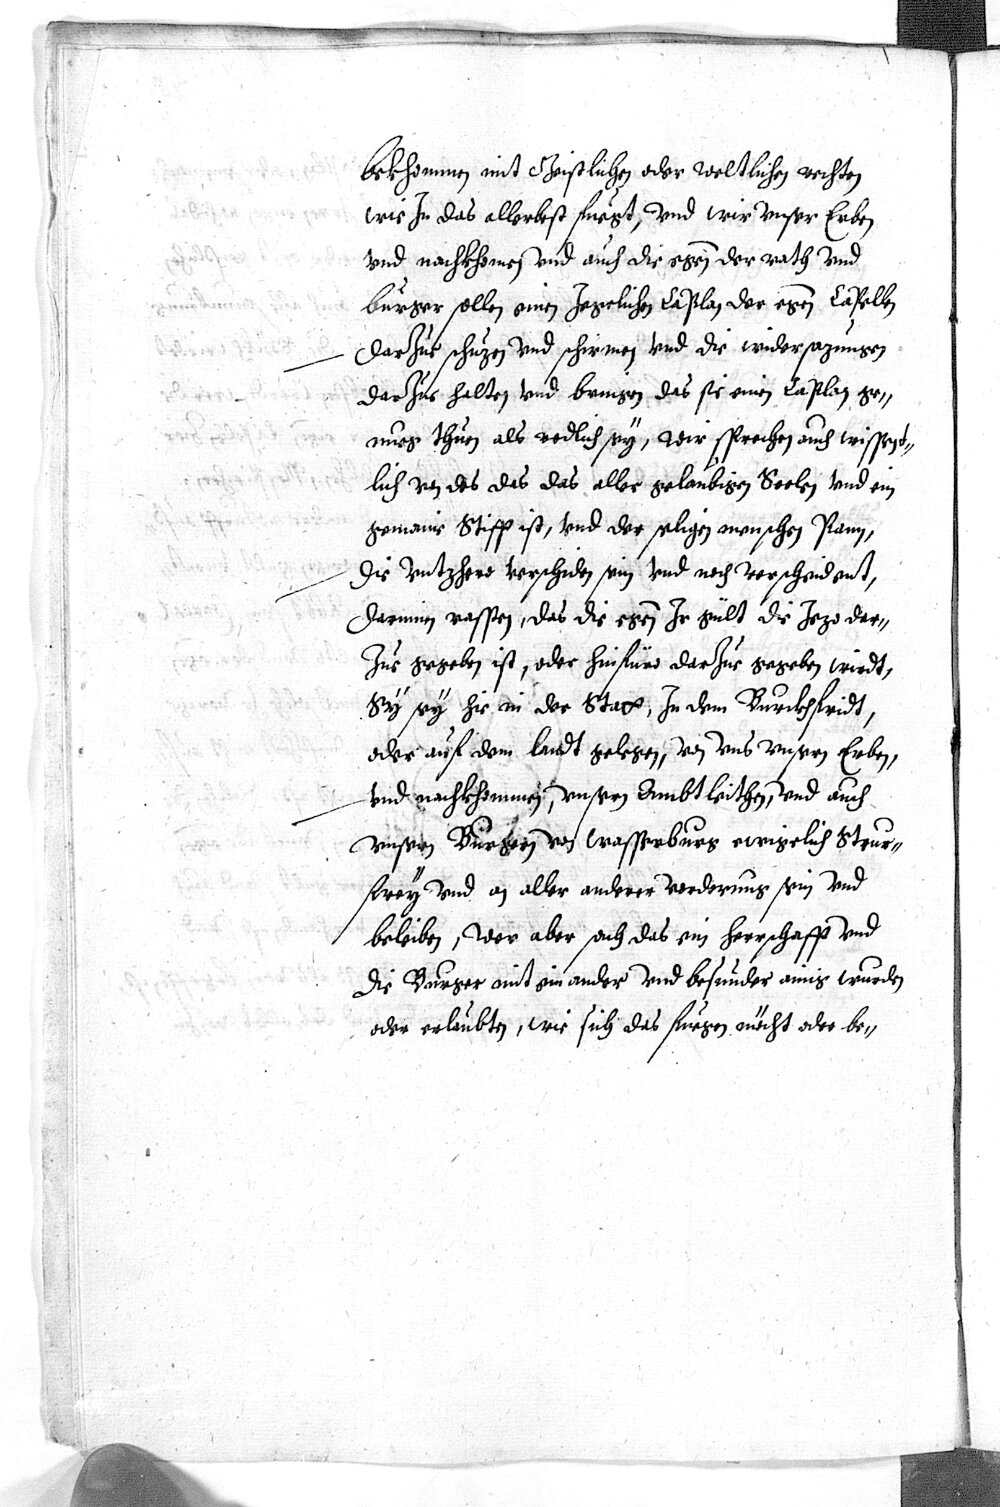 bekhommen mit Geistlichen oder weltlichen rechten
wie In das allerbest fuegt, vnd wir vnser Erben
vnd nachkhomen vnd auch die egen der rath vnd
burger sollen einen Jegelichen Caplan der egen Capellen
darzue schuzen vnd schirmen vnd die widersazungen
darzue halten vnd bringen das sie einen Caplan ge„
nueg thuen als redlich sey, wir sprechen auch wissent„
lich von des das das aller gelaubigen Seelen vnd ein
gemaine Stifft ist, vnd der seligen menschen Nam,
die vntzhero verschiden sein vnd noch verscheident,
darinin rassten, das die egen Ir gült die Jezo dar„
zue gegeben ist, oder hinfüro darzue gegeben wirdt,
Sÿ seÿ hie in der Statt, In dem Burckhfridt,
oder auf dem landt gelegen, von vns vnsern Erben,
vnd nachkhommen, vnsern Ambtleithen, vnd auch
vnsern Burgern von Wasserburg ewigelich Steur„
freÿ vnd on aller anderer vorderung sein vnd
beleiben, Wer aber sach das ein herrschafft vnd
die Burger mit einander vnd besunder ainig wurden
oder erlaubten, wie sich das fuegen möcht oder be„